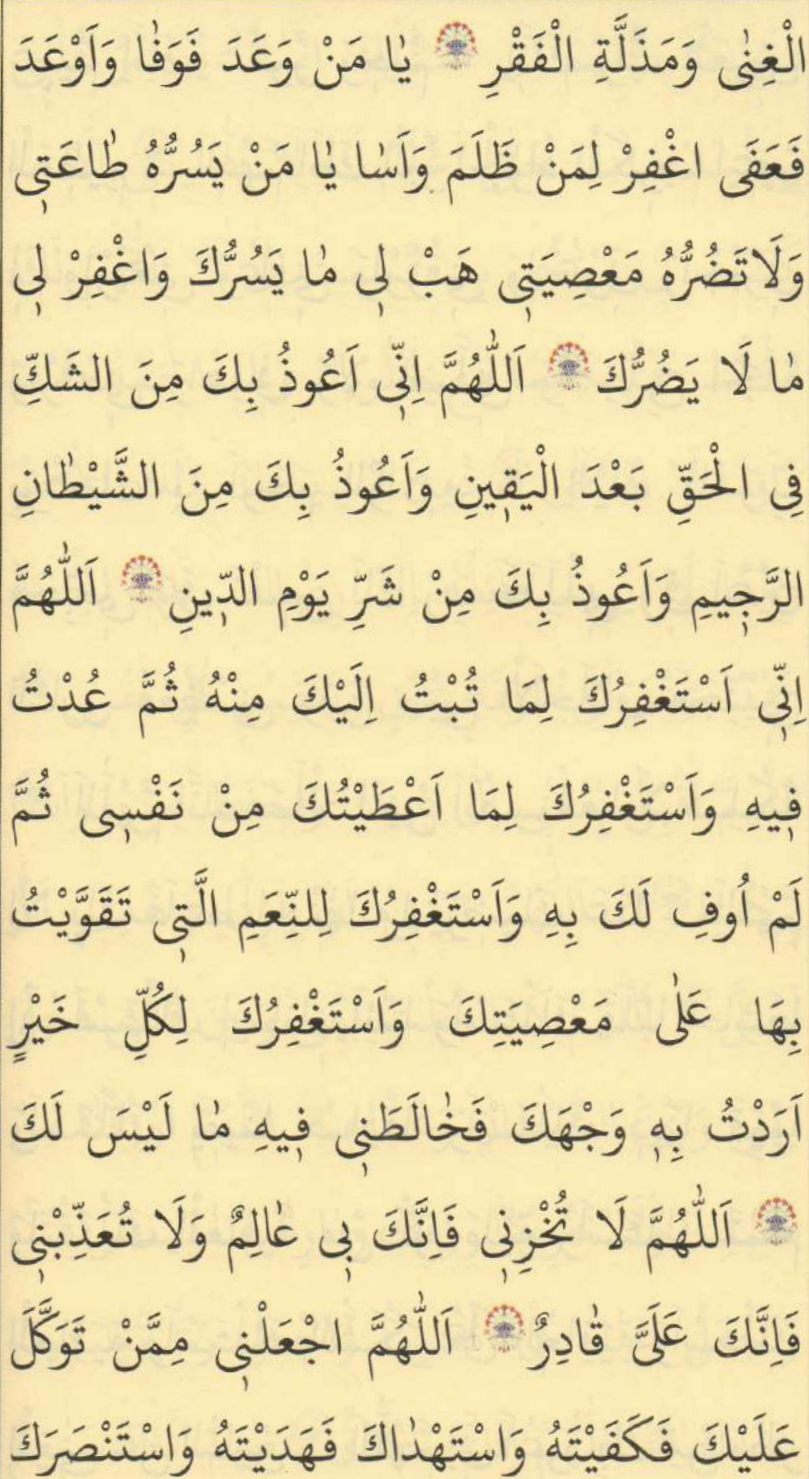 الْغِنٰى وَمَذَلَّةِ الْفَقْرِ يٰا مَنْ وَعَدَ فَوَفٰا وَاَوْعَدَ
فَعَفَى اغْفِرْ لِمَنْ ظَلَمَ وَاَسٰا يٰا مَنْ يَسُرُّهُ طٰاعَتٖى
وَلَاتَضُرُّهُ مَعْصِيَتٖى هَبْ لٖى مٰا يَسُرُّكَ وَاغْفِرْ لٖى
مٰا لَا يَضُرُّكَ اَللّٰهُمَّ اِنّٖى اَعُوذُ بِكَ مِنَ الشَكِّ
فِى الْحَقِّ بَعْدَ الْيَقٖينِ وَاَعُوذُ بِكَ مِنَ الشَّيْطٰانِ
الرَّجٖيمِ وَاَعُوذُ بِكَ مِنْ شَرِّ يَوْمِ الدّٖينِ اَللّٰهُمَّ
اِنّٖى اَسْتَغْفِرُكَ لِمَا تُبْتُ اِلَيْكَ مِنْهُ ثُمَّ عُدْتُ
فٖيهِ وَاَسْتَغْفِرُكَ لِمَا اَعْطَيْتُكَ مِنْ نَفْسٖى ثُمَّ
لَمْ اُوفِ لَكَ بِهِ وَاَسْتَغْفِرُكَ لِلنِّعَمِ الَّتٖى تَقَوَّيْتُ
بِهَا عَلٰى مَعْصِيَتِكَ وَاَسْتَغْفِرُكَ لِكُلِّ خَيْرٍ
اَرَدْتُ بِهٖ وَجْهَكَ فَخٰالَطَنٖى فٖيهِ مٰا لَيْسَ لَكَ
اَللّٰهُمَّ لَا تُخْزِنٖى فَاِنَّكَ بٖى عٰالِمٌ وَلَا تُعَذِّبْنٖى
فَاِنَّكَ عَلَىَّ قٰادِرٌ اَللّٰهُمَّ اجْعَلْنٖى مِمَّنْ تَوَكَّلَ
عَلَيْكَ فَكَفَيْتَهُ وَاسْتَهْدٰاكَ فَهَدَيْتَهُ وَاسْتَنْصَرَكَ